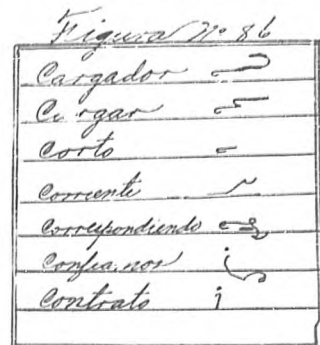 Figura Nº 86
Cargador
Cargar
Corto
Corriente
Correspondiendo
Confia nos
Contrato